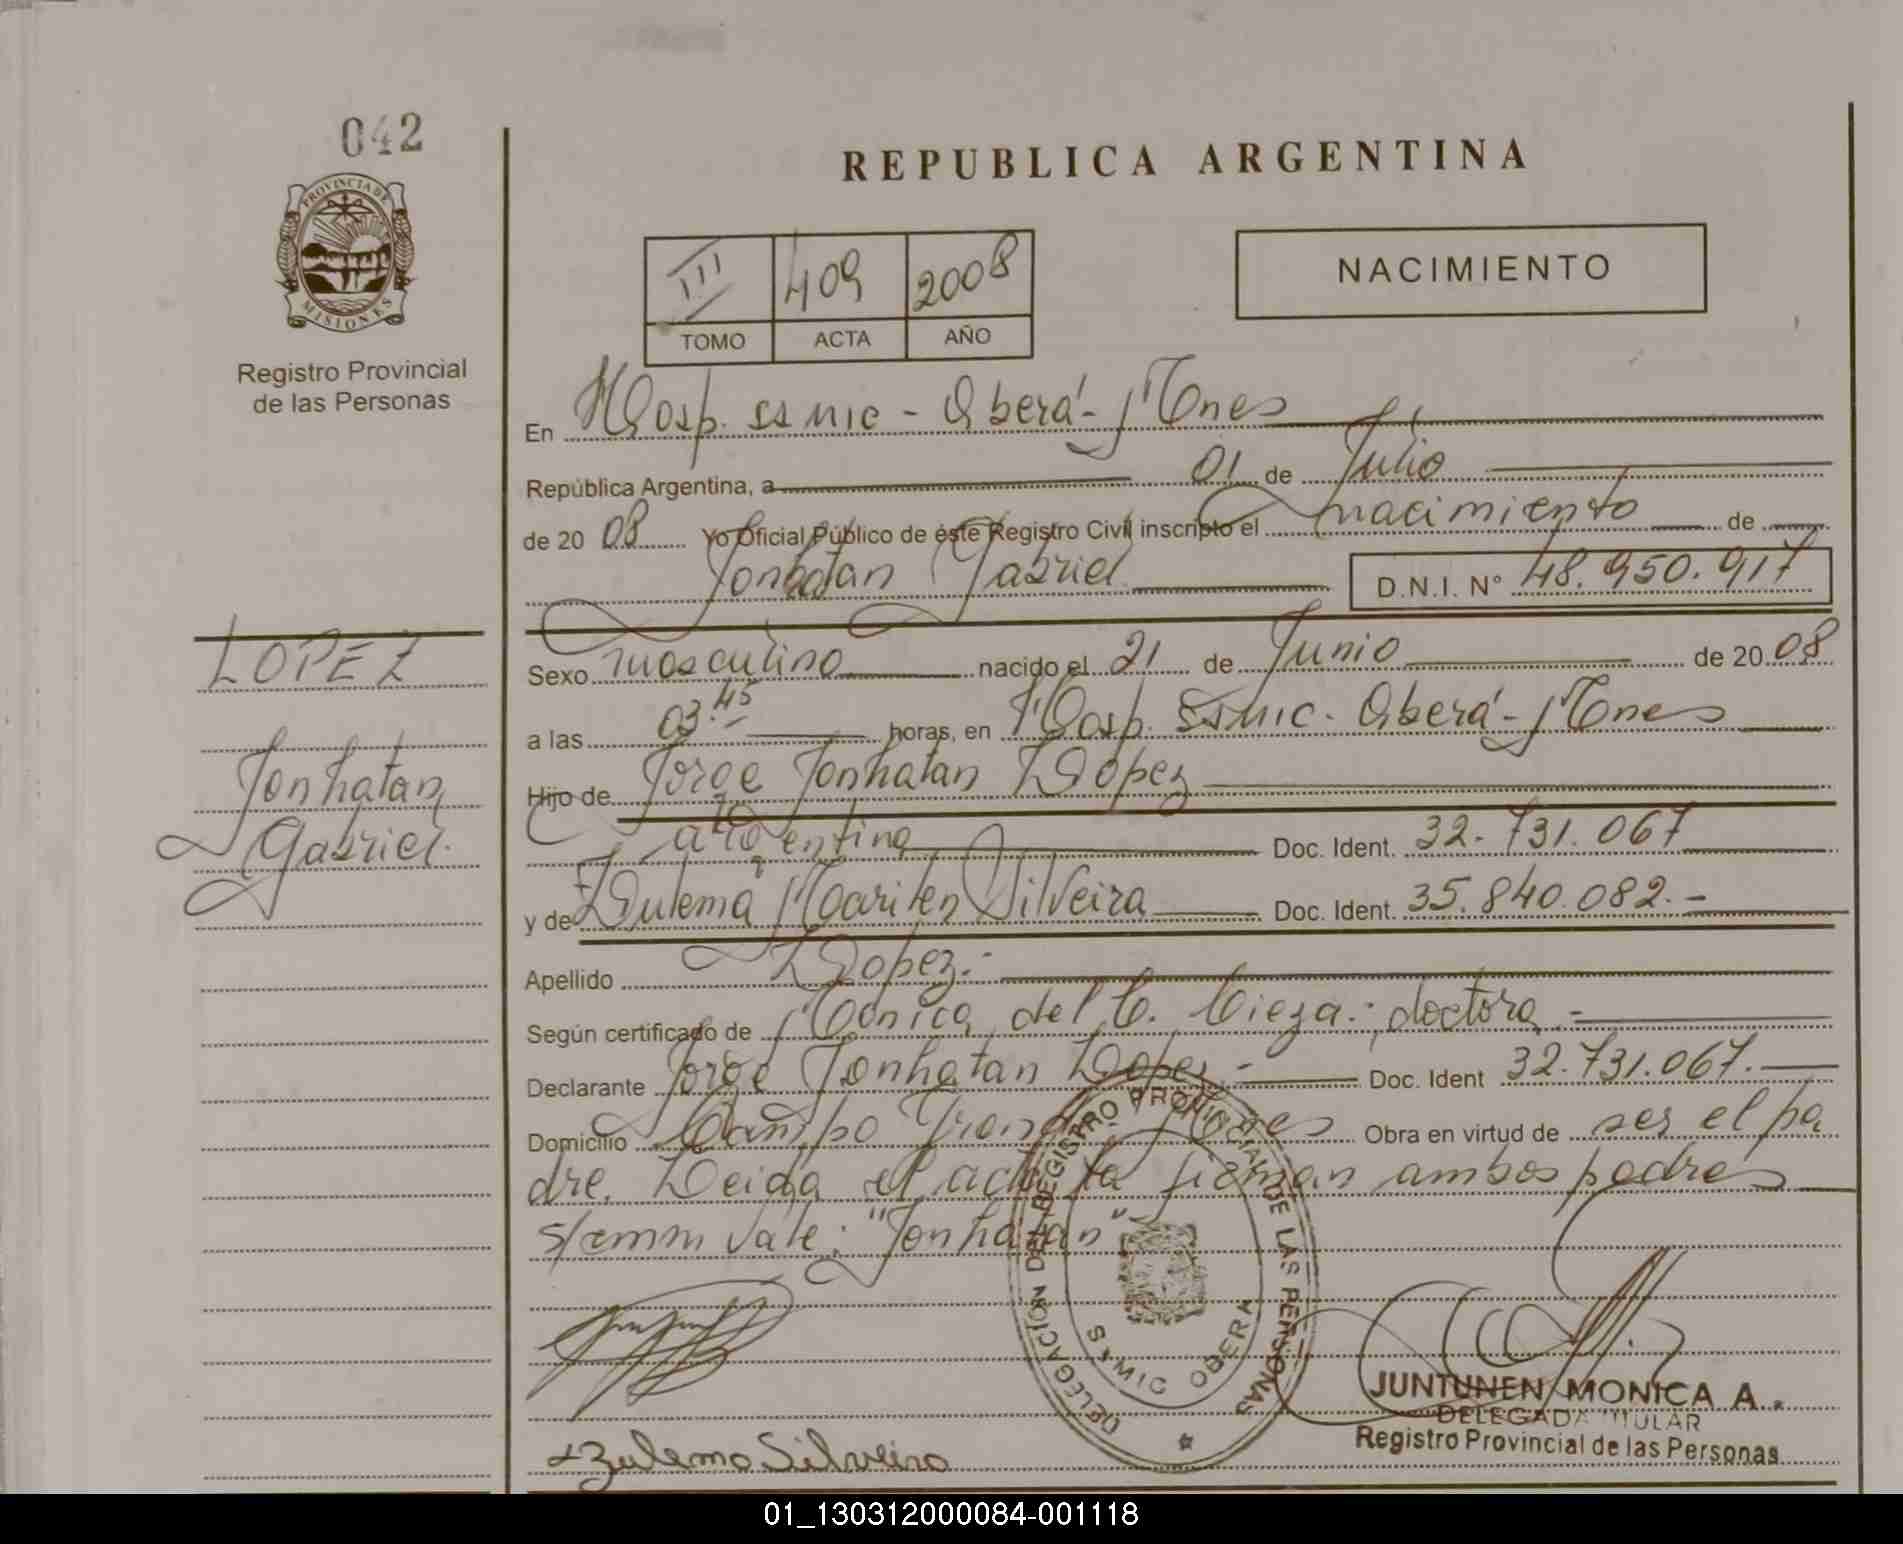 042
PROVINCIA DE
MISIONES
Registro Provincial
de las Personas
LOPEZ
Jonhatan
Gabriel.
REPUBLICA ARGENTINA
III 409 2008
TOMO ACTA AÑO
NACIMIENTO
En Hosp. ssmic - Oberá - Mnes
República Argentina, a 01 de Julio
de 20 08 Yo Oficial Público de éste Registro Civil inscripto el nacimiento de
Jonhatan Gabriel D.N.I. N° 48.950.917
Sexo masculino nacido el 21 de Junio de 20 08
a las 03.45 horas, en Hosp. Ssmic - Oberá - Mnes
Hijo de Jorge Jonhatan Lopez
argentino Doc. Ident. 32.731.067
y de Zulema Marilen Silveira Doc. Ident. 35.840.082.-
Apellido Lopez.-
Según certificado de Mónica del C. Cieza.- doctora.-
Declarante Jorge Jonhatan Lopez.- Doc. Ident 32.731.067.
Domicilio Campo Mnes Obra en virtud de ser el pa
dre. Leida el acta la firman ambos padres
s/emm vale: "Jonhatan"
DELEGACION DEL REGISTRO PROVINCIAL DE LAS PERSONAS
SAMIC OBERA
Zulema Silveira
JUNTUNEN MONICA A.
DELEGADA TITULAR
Registro Provincial de las Personas
01_130312000084-001118